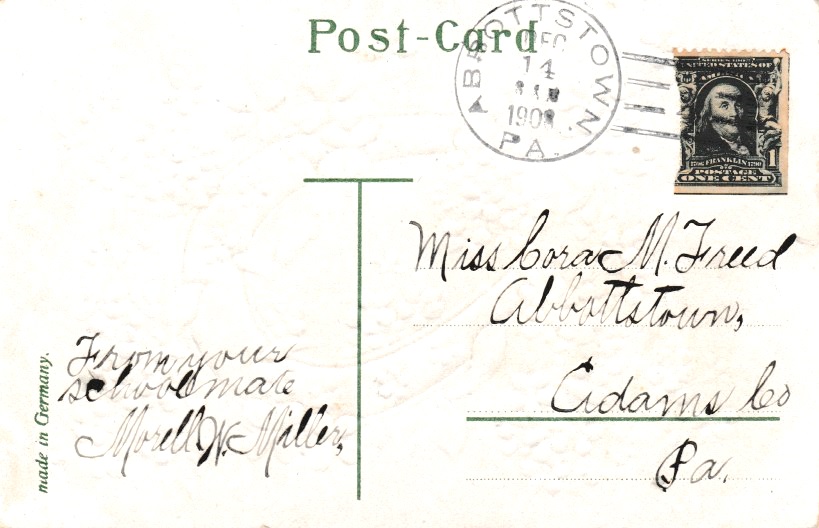 Post-Card
ABBOTTSTOWN
DEC
14
PA.
SERIES 1902
UNITED STATES OF
AMERICA
1706 FRANKLIN 1790
1
POSTAGE
ONE CENT
Miss Cora M. Freed
Abbottstown,
Adams Co
Pa.
From your
schoolmate
Morell. W. Miller,
made in Germany.